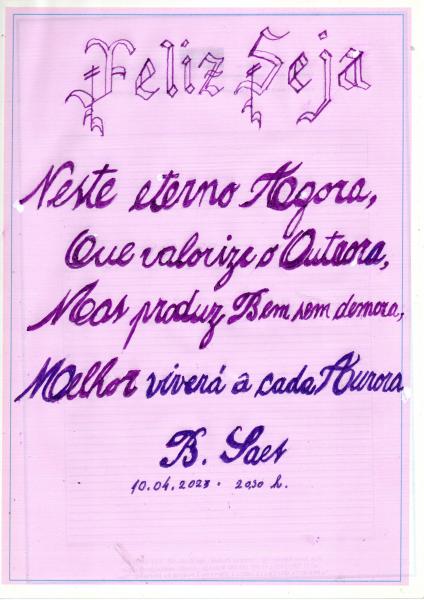 Feliz Seja
Neste eterno Agora,
Que valorize o Outrora,
Mas produz Bem sem demora,
Melhor viverá a cada Aurora
B. Saet
10.04.2023 . 20,30 h.